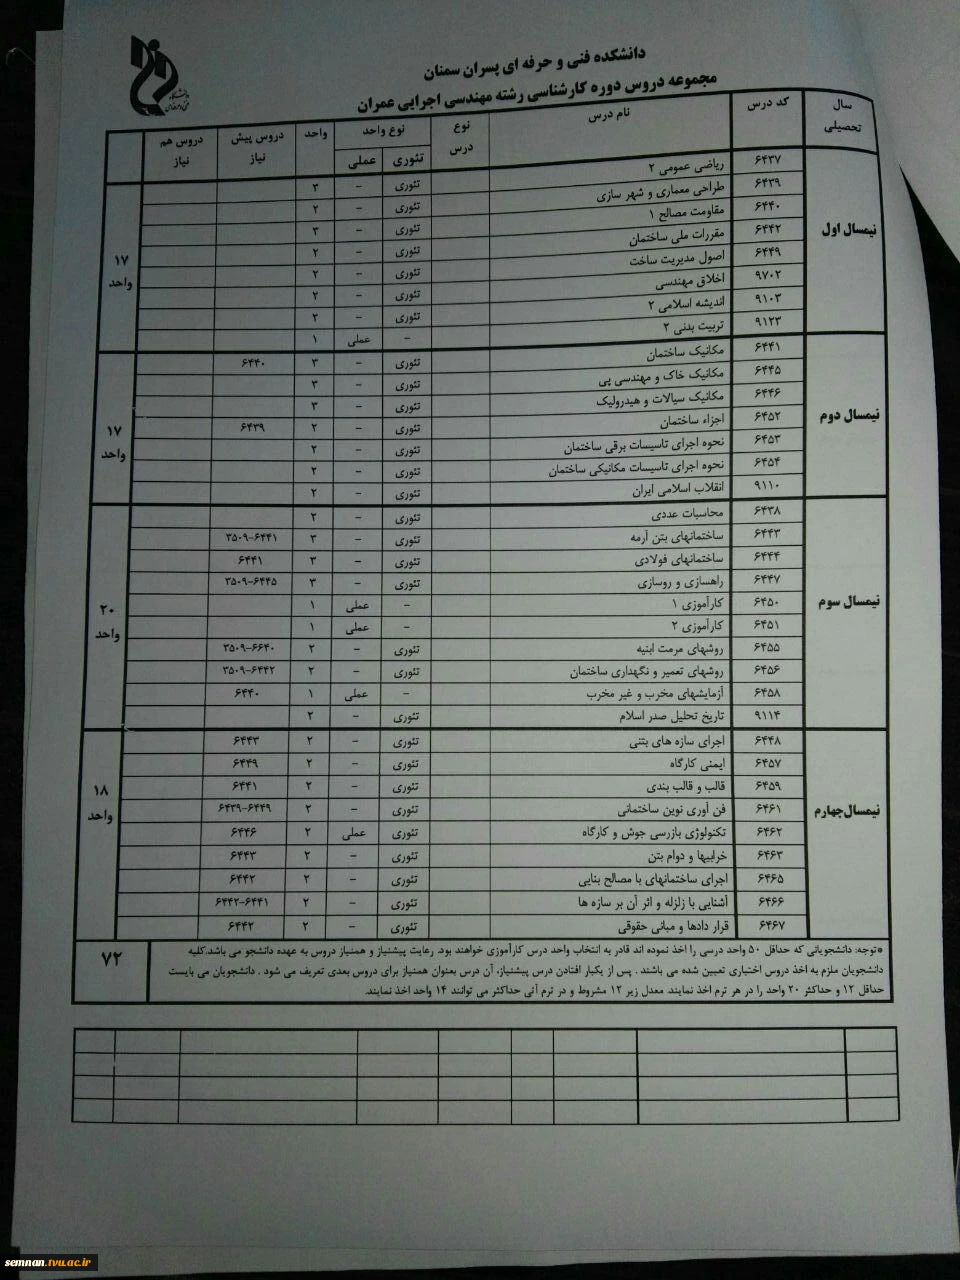 دانشکده فنی و حرفه ای پسران سمنان
مجموعه دروس دوره کارشناسی رشته مهندسی اجرایی عمران
دانشگاه
فنی و حرفه‌ای
سال تحصیلی | کد درس | نام درس | نوع درس | نوع واحد | تئوری | عملی | واحد | دروس پیش نیاز | دروس هم نیاز
نیمسال اول
۶۴۳۷ ریاضی عمومی ۲ تئوری - ۳
۶۴۳۹ طراحی معماری و شهر سازی تئوری - ۲
۶۴۴۰ مقاومت مصالح ۱ تئوری - ۳
۶۴۴۲ مقررات ملی ساختمان تئوری - ۲
۶۴۴۹ اصول مدیریت ساخت تئوری - ۲
۹۷۰۲ اخلاق مهندسی تئوری - ۲
۹۱۰۳ اندیشه اسلامی ۲ تئوری - ۲
۹۱۲۳ تربیت بدنی ۲ - عملی ۱
۱۷ واحد
نیمسال دوم
۶۴۴۱ مکانیک ساختمان تئوری - ۳ ۶۴۴۰
۶۴۴۵ مکانیک خاک و مهندسی پی تئوری - ۳
۶۴۴۶ مکانیک سیالات و هیدرولیک تئوری - ۳
۶۴۵۲ اجزاء ساختمان تئوری - ۲ ۶۴۳۹
۶۴۵۳ نحوه اجرای تاسیسات برقی ساختمان تئوری - ۲
۶۴۵۴ نحوه اجرای تاسیسات مکانیکی ساختمان تئوری - ۲
۹۱۱۰ انقلاب اسلامی ایران تئوری - ۲
۱۷ واحد
نیمسال سوم
۶۴۳۸ محاسبات عددی تئوری - ۲
۶۴۴۳ ساختمانهای بتن آرمه تئوری - ۳ ۶۴۴۱-۳۵۰۹
۶۴۴۴ ساختمانهای فولادی تئوری - ۳ ۶۴۴۱
۶۴۴۷ راهسازی و روسازی تئوری - ۳ ۶۴۴۵-۳۵۰۹
۶۴۵۰ کارآموزی ۱ - عملی ۱
۶۴۵۱ کارآموزی ۲ - عملی ۱
۶۴۵۵ روشهای مرمت ابنیه تئوری - ۲ ۶۶۴۰-۳۵۰۹
۶۴۵۶ روشهای تعمیر و نگهداری ساختمان تئوری - ۲ ۶۴۴۲-۳۵۰۹
۶۴۵۸ آزمایشهای مخرب و غیر مخرب - عملی ۱ ۶۴۴۰
۹۱۱۴ تاریخ تحلیل صدر اسلام تئوری - ۲
۲۰ واحد
نیمسال چهارم
۶۴۴۸ اجرای سازه های بتنی تئوری - ۲ ۶۴۴۳
۶۴۵۷ ایمنی کارگاه تئوری - ۲ ۶۴۴۹
۶۴۵۹ قالب و قالب بندی تئوری - ۲ ۶۴۴۱
۶۴۶۱ فن آوری نوین ساختمانی تئوری - ۲ ۶۴۴۹-۶۴۳۹
۶۴۶۲ تکنولوژی بازرسی جوش و کارگاه تئوری عملی ۲ ۶۴۴۶
۶۴۶۳ خرابیها و دوام بتن تئوری - ۲ ۶۴۴۳
۶۴۶۵ اجرای ساختمانهای با مصالح بنایی تئوری - ۲ ۶۴۴۲
۶۴۶۶ آشنایی با زلزله و اثر آن بر سازه ها تئوری - ۲ ۶۴۴۱-۶۴۴۲
۶۴۶۷ قرار دادها و مبانی حقوقی تئوری - ۲ ۶۴۴۲
۱۸ واحد
*توجه: دانشجویانی که حداقل ۵۰ واحد درسی را اخذ نموده اند قادر به انتخاب واحد درس کارآموزی خواهند بود. رعایت پیشنیاز و همنیاز دروس به عهده دانشجو می باشد.کلیه
دانشجویان ملزم به اخذ دروس اختیاری تعیین شده می باشند . پس از یکبار افتادن درس پیشنیاز، آن درس بعنوان همنیاز برای دروس بعدی تعریف می شود . دانشجویان می بایست
حداقل ۱۲ و حداکثر ۲۰ واحد را در هر ترم اخذ نمایند. معدل زیر ۱۲ مشروط و در ترم آتی حداکثر می توانند ۱۴ واحد اخذ نمایند.
۷۲
semnan.tvu.ac.ir